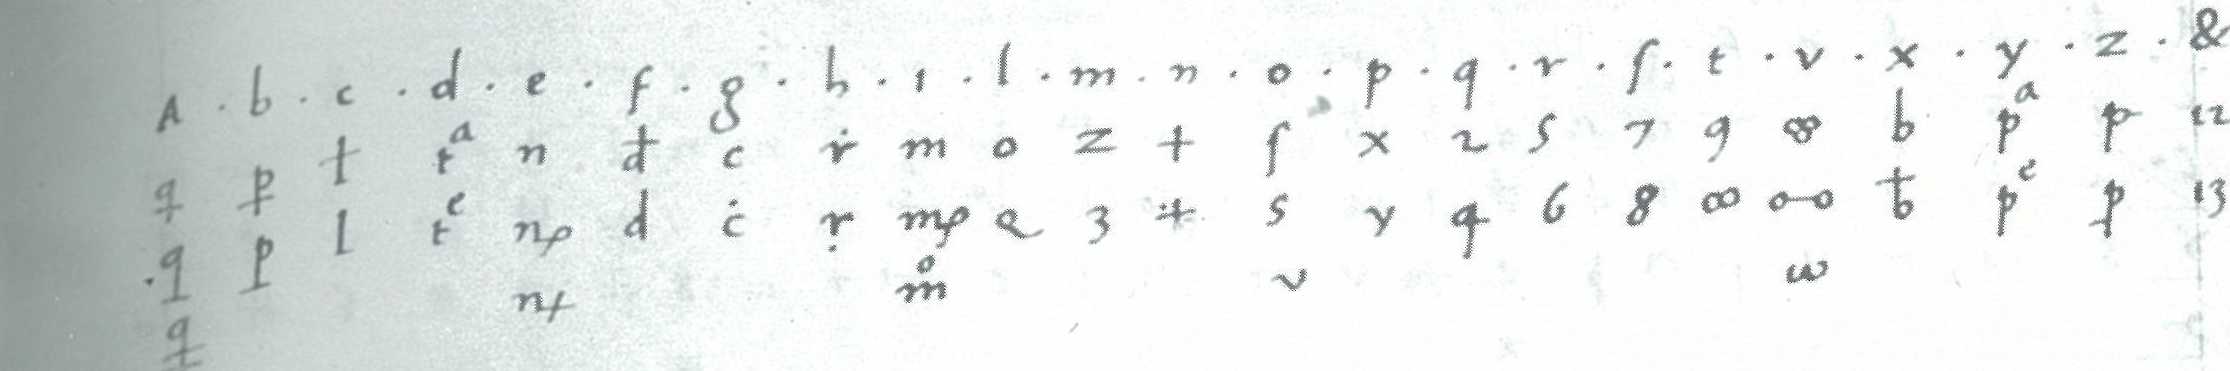 A . b . c . d . e . f . g . h . ı . l . m . n . o . p . q . r . ſ . t . v . x . y . z . &
q p ł tᵃ n đ c ṙ m o z + ſ x 2 5 7 9 b pᵃ p 12
q p l tᵉ np d ċ ṛ mp e 3 s y q 6 8 ∞ o-o b pᵉ p 13
q n+ m̊ v w